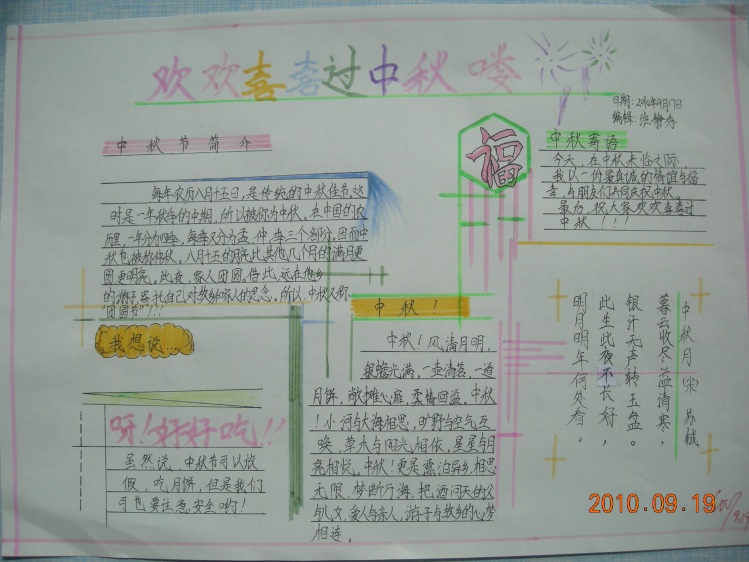 欢欢喜喜过中秋喽
日期:2010年9月17日
编辑:
中秋节简介
每年农历八月十五日,是传统的中秋佳节。这
时是一年秋季的中期,所以被称为中秋。在中国的农
历里,一年分为四季,每季又分为孟、仲、季三个部分,因而中
秋也被称仲秋。八月十五的月亮比其他几个月的满月更
圆,更明亮。此夜,家人团圆。借此,远在他乡
的游子寄托自己对故乡家人的思念。所以,中秋又称
"团圆节"!?!
福
中秋寄语
今天,在中秋来临之际,
我以一份最真诚的情谊与福
幸,与朋友们共同庆祝中秋。
最后,祝大家欢欢喜喜过
中秋!!!
中秋月 宋 苏轼
暮云收尽溢清寒,
银汉无声转玉盘。
此生此夜不长好,
明月明年何处看。
中秋!
中秋!风清月明,
银蟾光满,一壶清茗,一道
月饼,敞摊心庭,柔情回溢。中秋
!小河与大海相思,旷野与空气互
唤,草木与阳光相依,星星与月
亮相悦。中秋!更是漂泊异乡,相思
无限,梦断沧海,把酒问天的父
与儿女,爱人与亲人,游子与故乡的心梦
相连。
我想说…
呀!好好吃!!
虽然说,中秋节可以放
假,吃月饼,但是我们
可也要注意安全哟!
2010.09.19
9.19